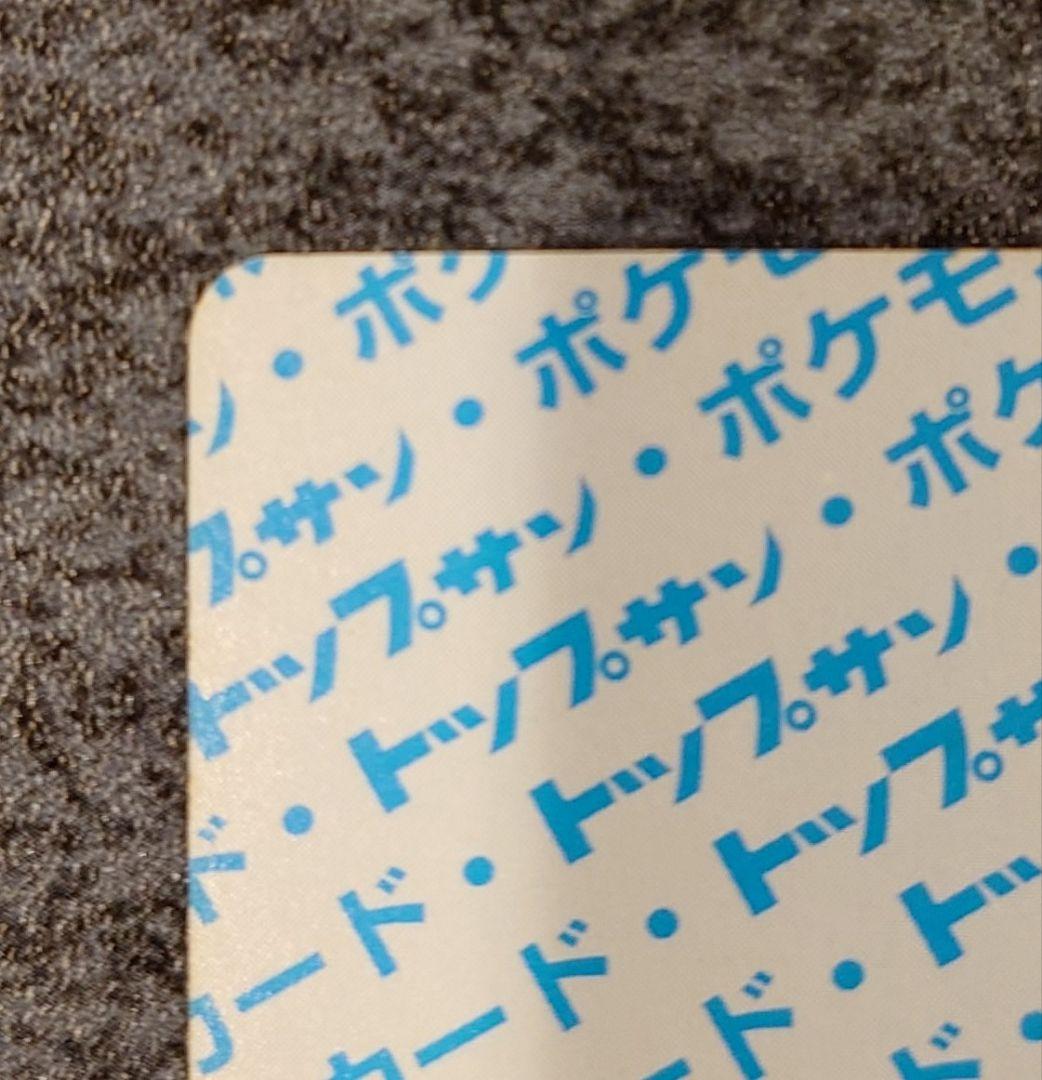 ン・ポケ
プサン・ポケモ
トップサン・ポケモ
ド・トップサン・ポケ
カード・トップサン・
カード・トップサ
ード・トッ
ド・